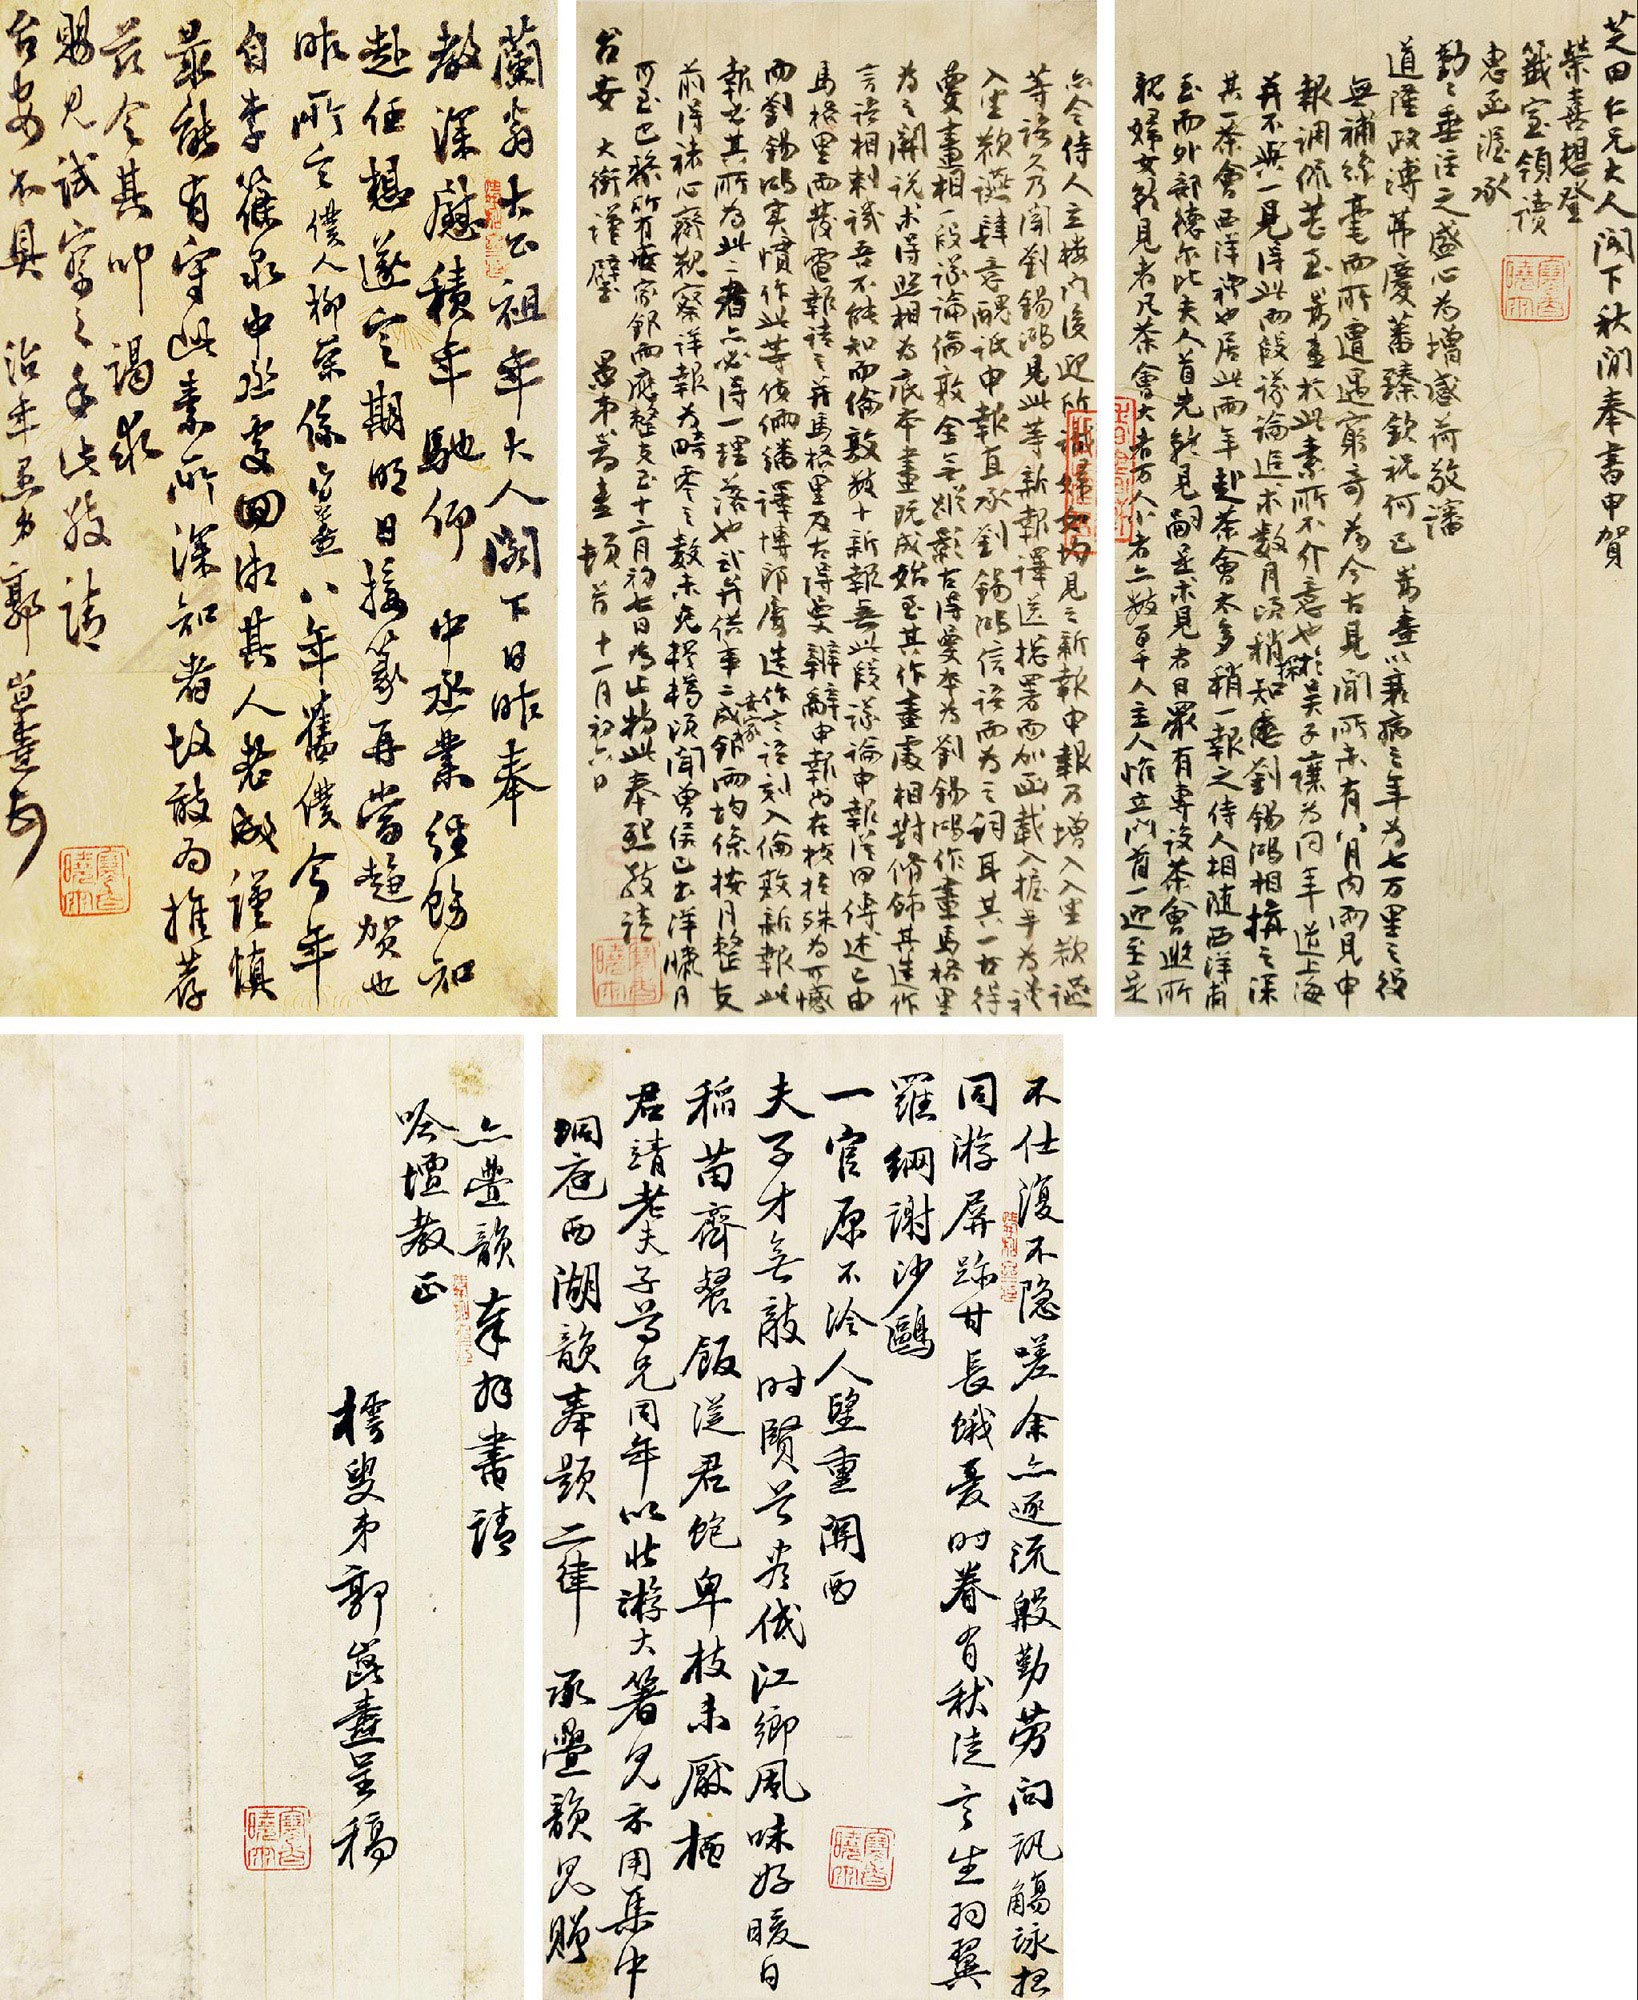 芝田仁兄大人閣下秋間奉書申賀
榮喜想登
籤室頃讀
惠函渥承
勤勤垂注之盛心為增感荷敬審
道隆政溥茀慶蕃臻欽祝何已嵩燾以衰病之年為七萬里之役
無補絲毫而所遭遇窮奇為今古見聞所未有八月內兩見申
報調侃甚至嵩燾於此素所不介意也於吳子讓為同年道上海
并不與一見得此兩段議論追求數月頃稍知悉劉錫鴻相搆之深
其一茶會西洋禮也居此兩年赴茶會太多稍一報之侍人相隨西洋有
至而外部德爾比夫人首先就見嗣是求見者日眾有專設茶會邀所
親婦女就見者凡茶會大者萬人小者亦數百千人主人惟立門首一迎至是
亦令侍人立樓門後迎所識婦女均見之新報申報乃增入入座歡讌
等語久乃聞劉錫鴻見此等新報譯送總署而加函載入握手為禮
入坐歡讌肆意醜詆申報直承劉錫鴻信語而為之詞耳其一古得
曼畫相一段議論倫敦全無蹤影古得曼本為劉錫鴻作畫馬格里
為之關說求得照相為底本畫既成始至其作畫處相對脩飾其造作
言語相刺譏吾不能知而倫敦數十新報無此段議論申報從何傳述已由
馬格里兩發電報詰之并馬格里及古得曼辦辭申報尚在枝梧殊為可憾
而劉錫鴻實慣作此等伎倆繙譯博郎屬造作言語刻入倫敦新報此
報出其所為此二者亦必得一理落也武弁供事二成安家銷兩均係按月整支
前得褚心齋觀察詳報為畸零之數未免樛轕頃聞曾侯已出洋燐月
可至已祭所有安家銀兩應整支至十二月初七日為止特此奉懇敬請
台安 大銜謹璧 愚弟嵩燾頓首 十一月初六日
蘭翁大公祖年大人閣下日昨奉
教深慰積年馳仰 中丞業經飭知
赴任想遂定期明日接篆再當趨賀也
昨所言僕人柳榮係嵩燾八年舊僕今年
自李筱泉中丞處回湘其人老成謹慎
最能有守此素所深知者故敢為推薦
茲令其叩謁求
賜見試察之手此敬請
台安 不具 治年愚弟郭嵩燾頓首
不仕復不隱嗟余亦逐流殷勤勞問訊觴詠想
同游屏跡甘長蛾憂時眷有秋徒言生羽翼
羅網謝沙鷗
一官原不冷人望重關西
夫子才無敵時賢首盡低江鄉風味好暖日
稻苗齊餐飯從君飽卑枝未厭栖
君靖老夫子尊兄同年以壯游大箸見示用集中
洞庭西湖韻奉題二律 承疊韻見贈
亦疊韻奉和書請
吟壇教正
樗叟弟郭嵩燾呈稿